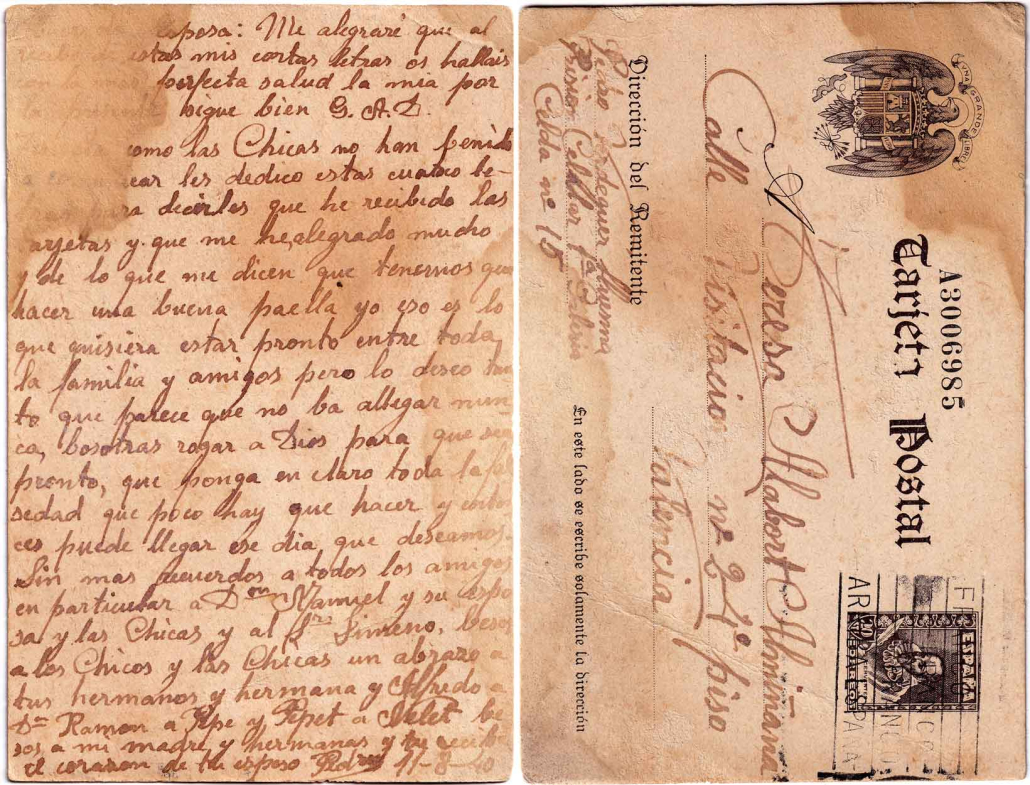 esposa: Me alegraré que al
estas mis cortas letras os hallais
perfecta salud la mia por
sigue bien G. A. D.
como las Chicas no han penido
les dedico estas cuatro le-
para decirles que he recibido las
arjetas y que me he alegrado mucho
y de lo que me dicen que tenemos que
hacer una buena paella yo eso es lo
que quisiera estar pronto entre toda
la familia y amigos pero lo deseo tan
to que parece que no ba allegar nun-
ca, bosotras rogar a Dios para que sea
pronto, que ponga en claro toda la fal
sedad que poco hay que hacer y enton
ces puede llegar ese dia que deseamos.
Sin mas recuerdos a todos los amigos
en particular a Don Manuel y su espo
sa y las Chicas y al Sr. Jimeno, besos
a los Chicos y las Chicas un abrazo a
tus hermanos y hermana y Alfredo a
Dn Ramon a Pepe y Pepet a be
sos a mi madre y hermanas y tu recibe
el corazon de tu esposo 11-8-40
UNA GRANDE LIBRE
Tarjeta Postal
A3006985
ESPAÑA
20
CORREOS
FRANCO
ARRIBA ESPAÑA
Teresa Alabort Almiñana
Calle Visitacion nº 2 1º piso
Valencia
Dirección del Remitente
Pedro
Prision Celular 1ª Galeria
Celda nº 15
En este lado se escribe solamente la dirección